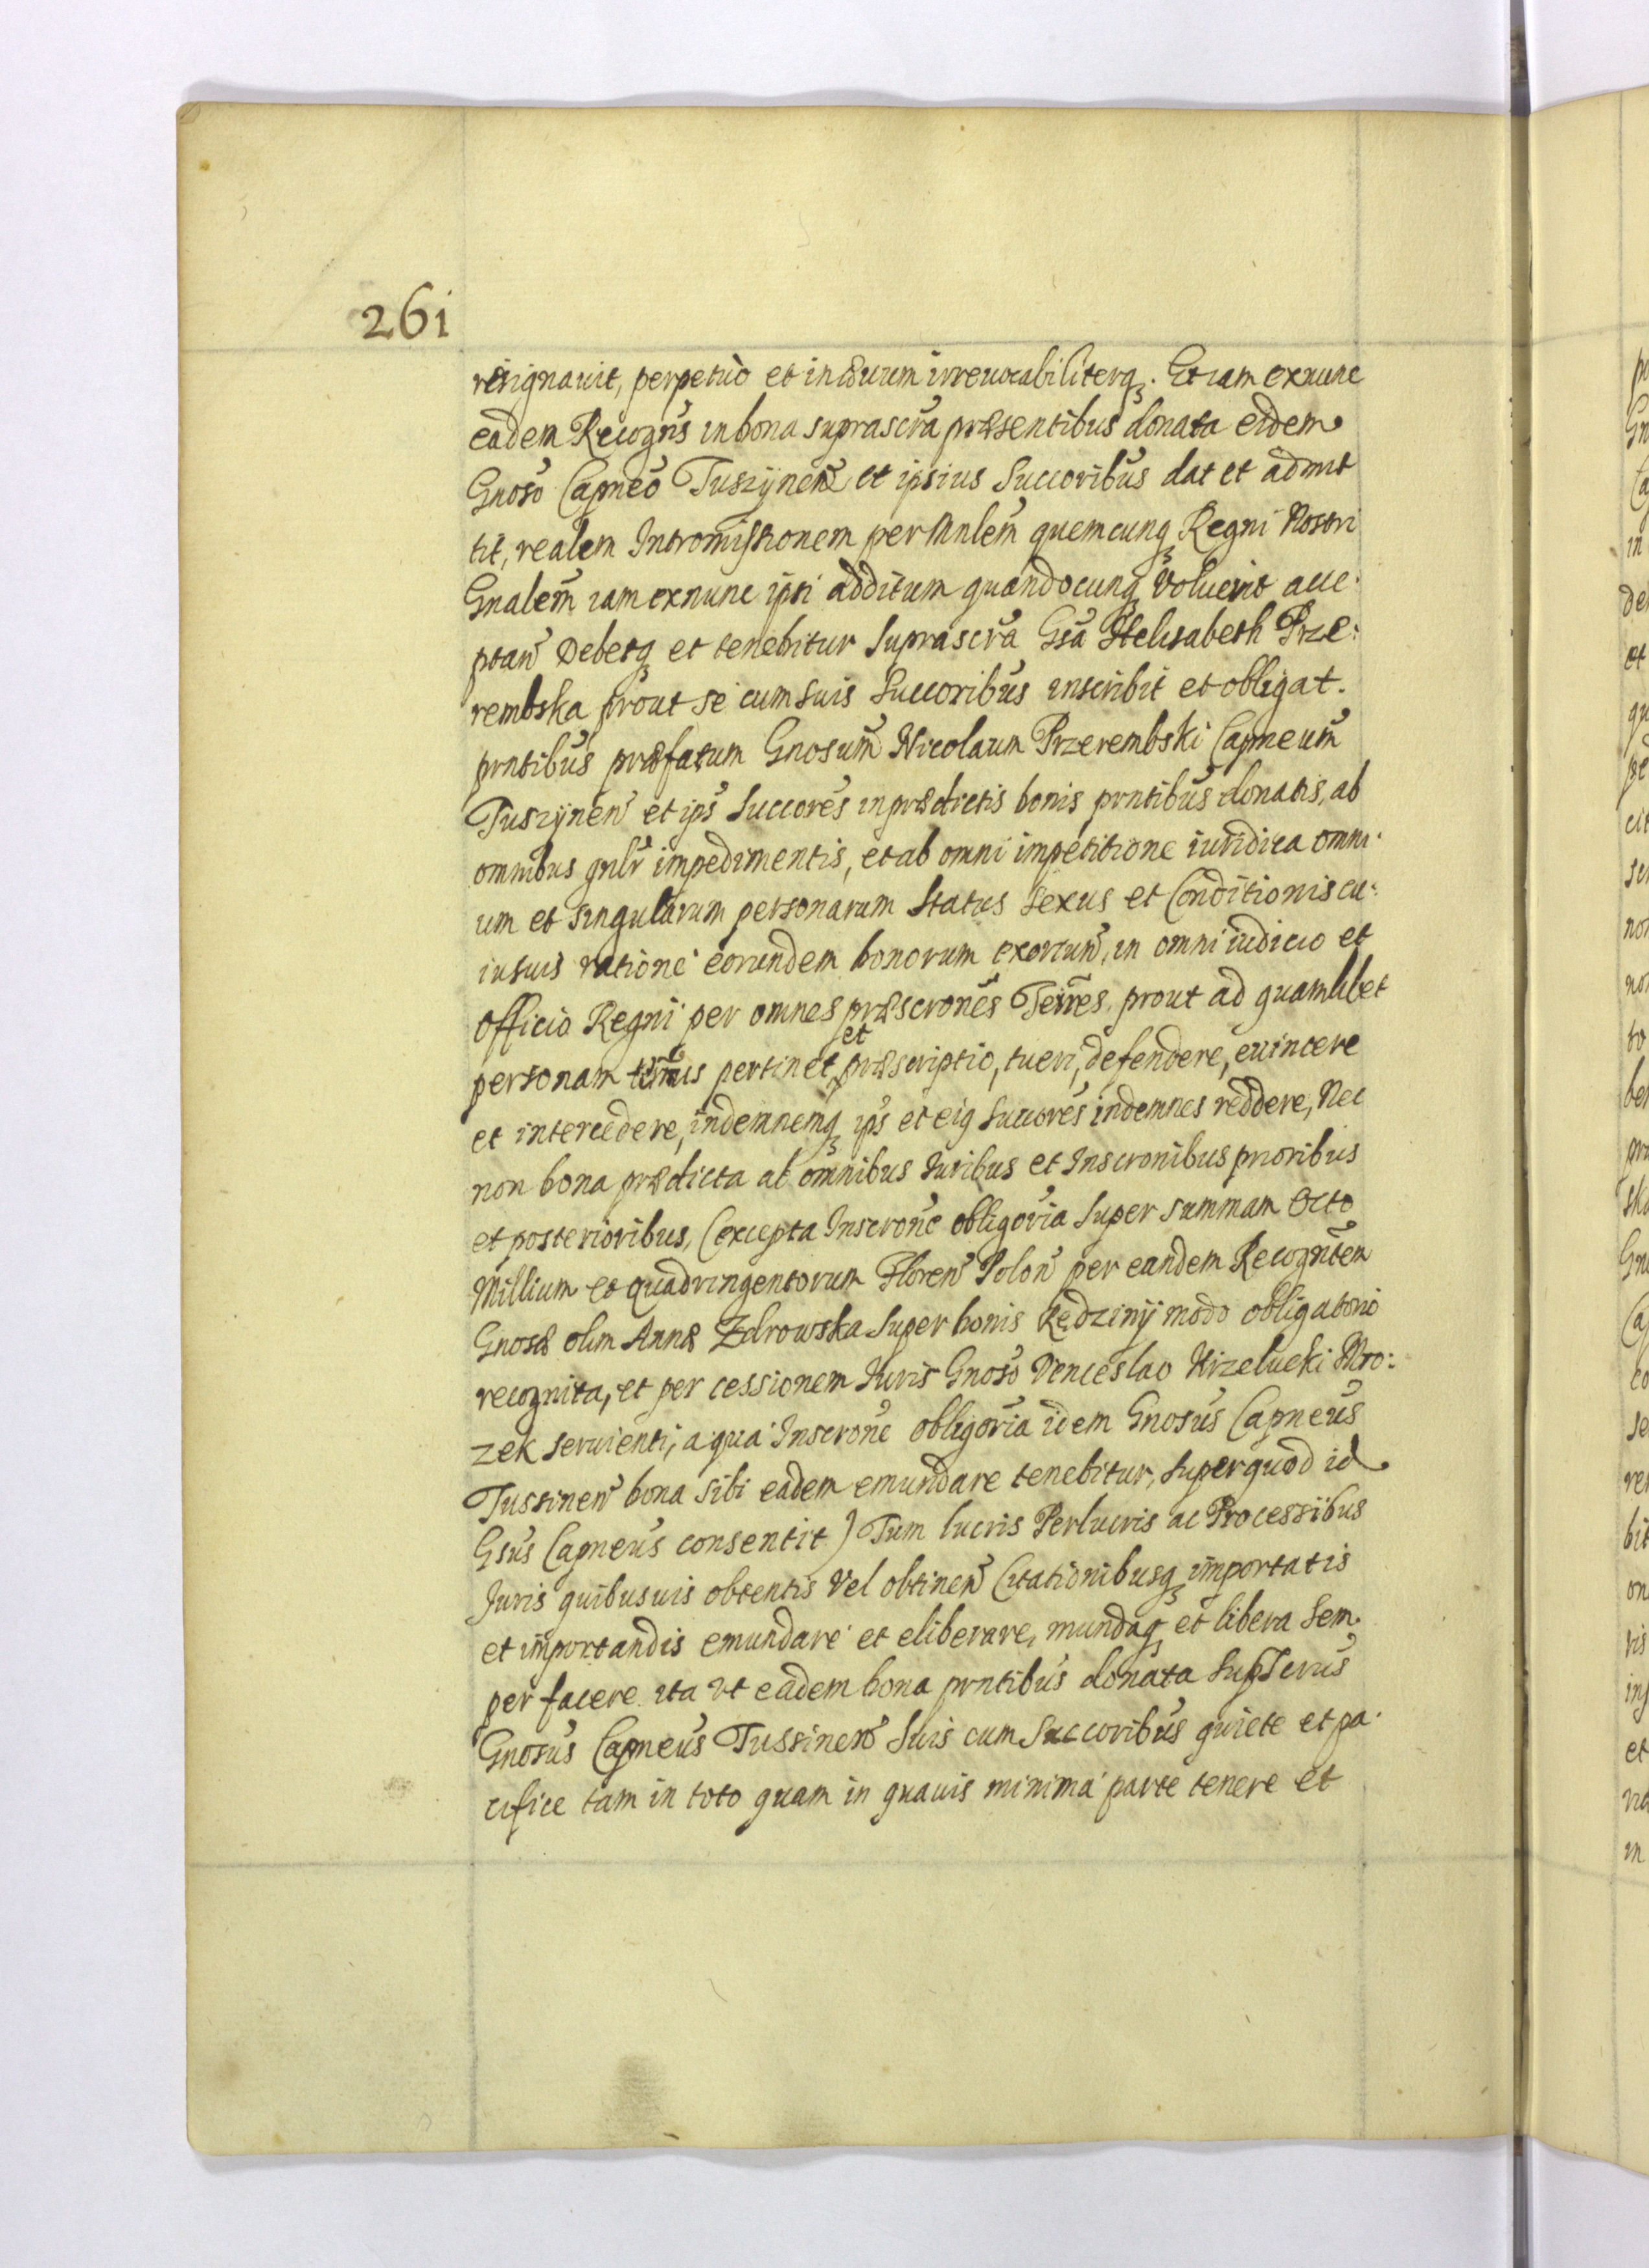 261
resignavit, perpetuò et in æuum irreuocabiliterq3. Et iam exnunc
eadem Recogn̄s in bona suprascr̄a præsentibus donata eidem
Gnōso Capn̄eo Tuszÿnen̄ et ipsius Succoribus dat et admit
tit, realem Intromissionem per Mnl̄em quemcunq3 Regni Nostri
Gnalem̄ iam exnunc ipsi additum quandocunq3 Voluerit acce-
ptan̄ Debetq3 et tenebitur Suprascr̄a Gsā Helisabeth Prze:
rembska prout se cum suis Succoribus inscribit et obligat.
prn̄tibus præfatum Gnōsum Nicolaum Przerembski Capn̄eum
Tuszÿnen̄ et ips̄ Succores in prædictis bonis prn̄tibus donatis, ab
omnibus gn̄lr impedimentis, et ab omni impetitione iuridica omni-
um et singularum personarum Status Sexus et Conditionis cu:
iusuis ratione eorundem bonorum exortun̄, in omni iudicio et
Officio Regni per omnes præscrōnes Terrēs, prout ad quamlibet
personam pertinet et præscriptio, tueri, defendere, euincere
et intercedere, indemnemq3 ips̄ et eig Succores indemnes reddere, Nec
non bona prædicta ab omnibus Iuribus et Inscronibus prioribus
et posterioribus, (excepta Inscrone obligōria Super summam Octo
Millium et quadringentorum Floren̄ Polon̄ per eandem Recogn̄tem
Gnosæ olim Annæ Zdrowska Super bonis Rędzinÿ modo obligatorio
recognita, et per cessionem Iuris Gnōso Venceslao Krzelucki Mro:
zek seruienti, a qua Inscrone obligōria idem Gnōsus Capneus
Tussinen̄ bona Sibi eadem emundare tenebitur, Super quod id
Gsus Capneus consentit) Tum lucris Perlucris ac Processibus
Iuris quibusuis obtentis Vel obtinen̄ Citationibusq3 importatis
et importandis emundare et eliberare, mundaq3 et libera Sem
per facere ita Vt eadem bona prn̄tibus donata Supscr̄us
Gnosus Capneus Tussinen̄ Suis cum Succoribus quiete et pa-
cifice tam in toto quam in quauis minima parte tenere et